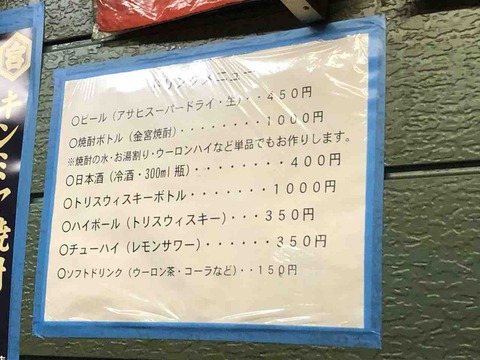 ドリンクメニュー
〇ビール（アサヒスーパードライ・生）・・４５０円
〇焼酎ボトル（金宮焼酎）・・・・・・・・１０００円
※焼酎の水・お湯割り・ウーロンハイなど単品でもお作りします。
〇日本酒（冷酒・300ml瓶）・・・・・・・４００円
〇トリスウィスキーボトル・・・・・・・１０００円
〇ハイボール（トリスウィスキー）・・・３５０円
〇チューハイ（レモンサワー）・・・・・３５０円
〇ソフトドリンク（ウーロン茶・コーラなど）・・１５０円
宮
キンミヤ焼酎